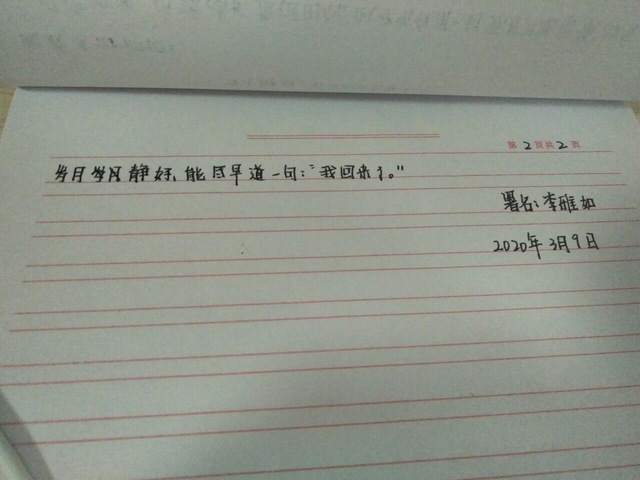 第2页共2页
岁月 静好，能尽早道一句：“我回来了。”
署名：李雅如
2020年3月9日